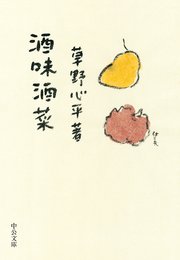 酒味酒菜
草野心平著
中公文庫